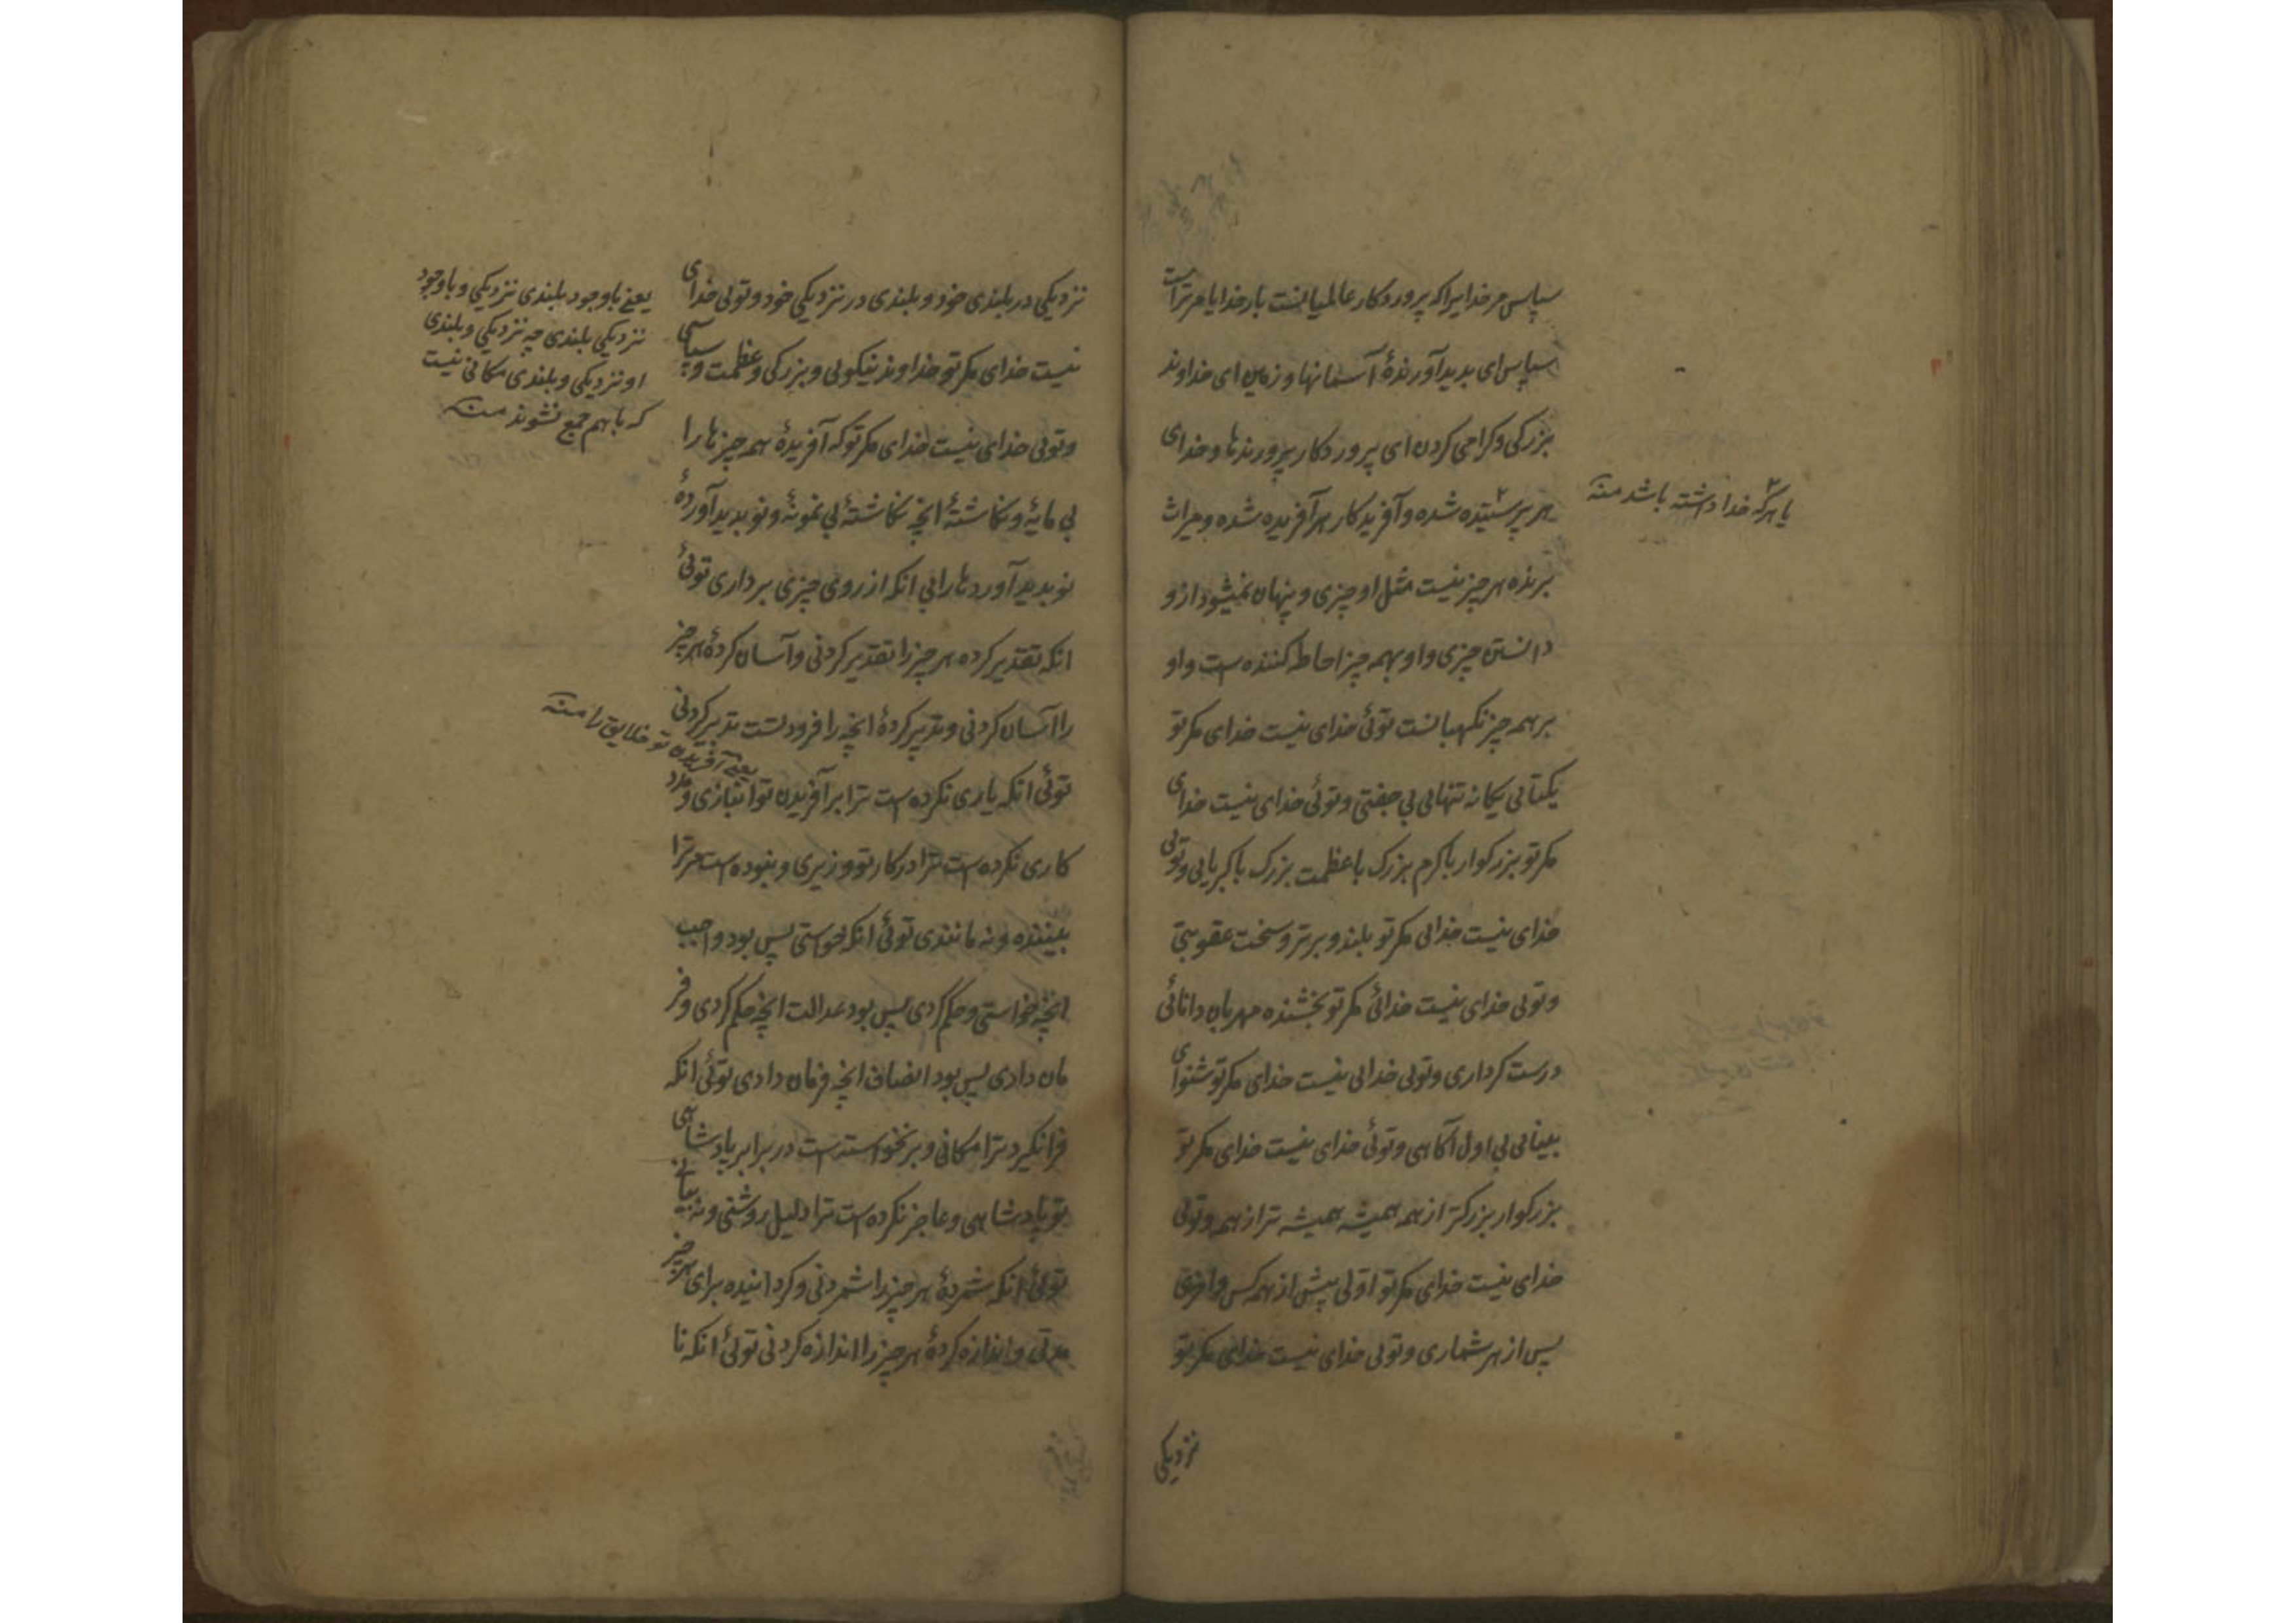 سپاس مر خدایرا که پروردکار عالمیانست بار خدایا مر تراست
سپاس ای بدید آورندهٔ آسمانها و زمین ای خداوند
بزرکی و کرامی کردن ای پروردکار پرورندها و خدای
هر پرستیده شده و آفریدکار هر آفریده شده و میراث
یا هر که خدا داشته باشد منه
برنده هر چیز نیست مثل او چیزی و پنهان نمیشود ازو
دانستن چیزی و او بهمه چیز احاطه کننده است و او
بر همه چیز نکهبانست توئی خدای نیست خدای مکر تو
یکتائی یکانه تنهائی بی جفتی و توئی خدای نیست خدای
مکر تو بزرکوار باکرم بزرک با عظمت بزرک با کبریایی و توئی
خدای نیست خدائی مکر تو بلند و برتر و سخت عقوبتی
و توئی خدای نیست خدائی مکر تو بخشنده مهربان دانائی
درست کرداری و توئی خدائی نیست خدای مکر تو شنوای
بینائی بی اول آکاهی و توئی خدای نیست خدای مکر تو
بزرکوار بزرکتر از همه همیشه همیشه تر از همه و توئی
خدای نیست خدای مکر تو اولی پیش از همه کس و آخری
پس از هر شماری و توئی خدای نیست خدای مکر تو
نزدیکی
نزدیکی در بلندی خود و بلندی در نزدیکی خود و توئی خدای
نیست خدای مکر تو خداوند نیکوئی و بزرکی و عظمت و سپاسی
و توئی خدای نیست خدای مکر تو که آفریدهٔ همه چیزها را
بی مایهٔ و نکاشتهٔ انچه نکاشتهٔ بی نمونهٔ و نو بدید آوردهٔ
نو بدید آوردها را بی انکه از روی چیزی برداری توئی
انکه تقدیر کرده هر چیز را تقدیر کردنی و آسان کردهٔ هر چیز
را آسان کردنی و تدبیر کردهٔ انچه را فرود تست تدبیر کردنی
توئی انکه یاری نکرده است ترا بر آفریدن تو انبازی و مدد
کاری نکرده است ترا در کار تو وزیری و نبوده است مر ترا
بیننده و نه مانندی توئی انکه خواستی پس بود واجب
انچه خواستی و حکم کردی پس بود عدالت انچه حکم کردی و فر
مان دادی پس بود انصاف انچه فرمان دادی توئی انکه
فرا نکیرد ترا مکانی و بر نخواسته است در برابر پادشاهی
تو پادشاهی و عاجز نکرده است ترا دلیل روشنی و نه بیانی
توئی انکه شمردهٔ هر چیز را شمردنی و کردانیده برای هر چیز
مدتی و اندازه کردهٔ هر چیز را اندازه کردنی توئی انکه نا
یعنی باوجود بلندی نزدیکی و باوجود
نزدیکی بلندی چه نزدیکی و بلندی
او نزدیکی و بلندی مکانی نیست
که باهم جمع نشوند منه
یعنی آفریدن تو خلایق را منه